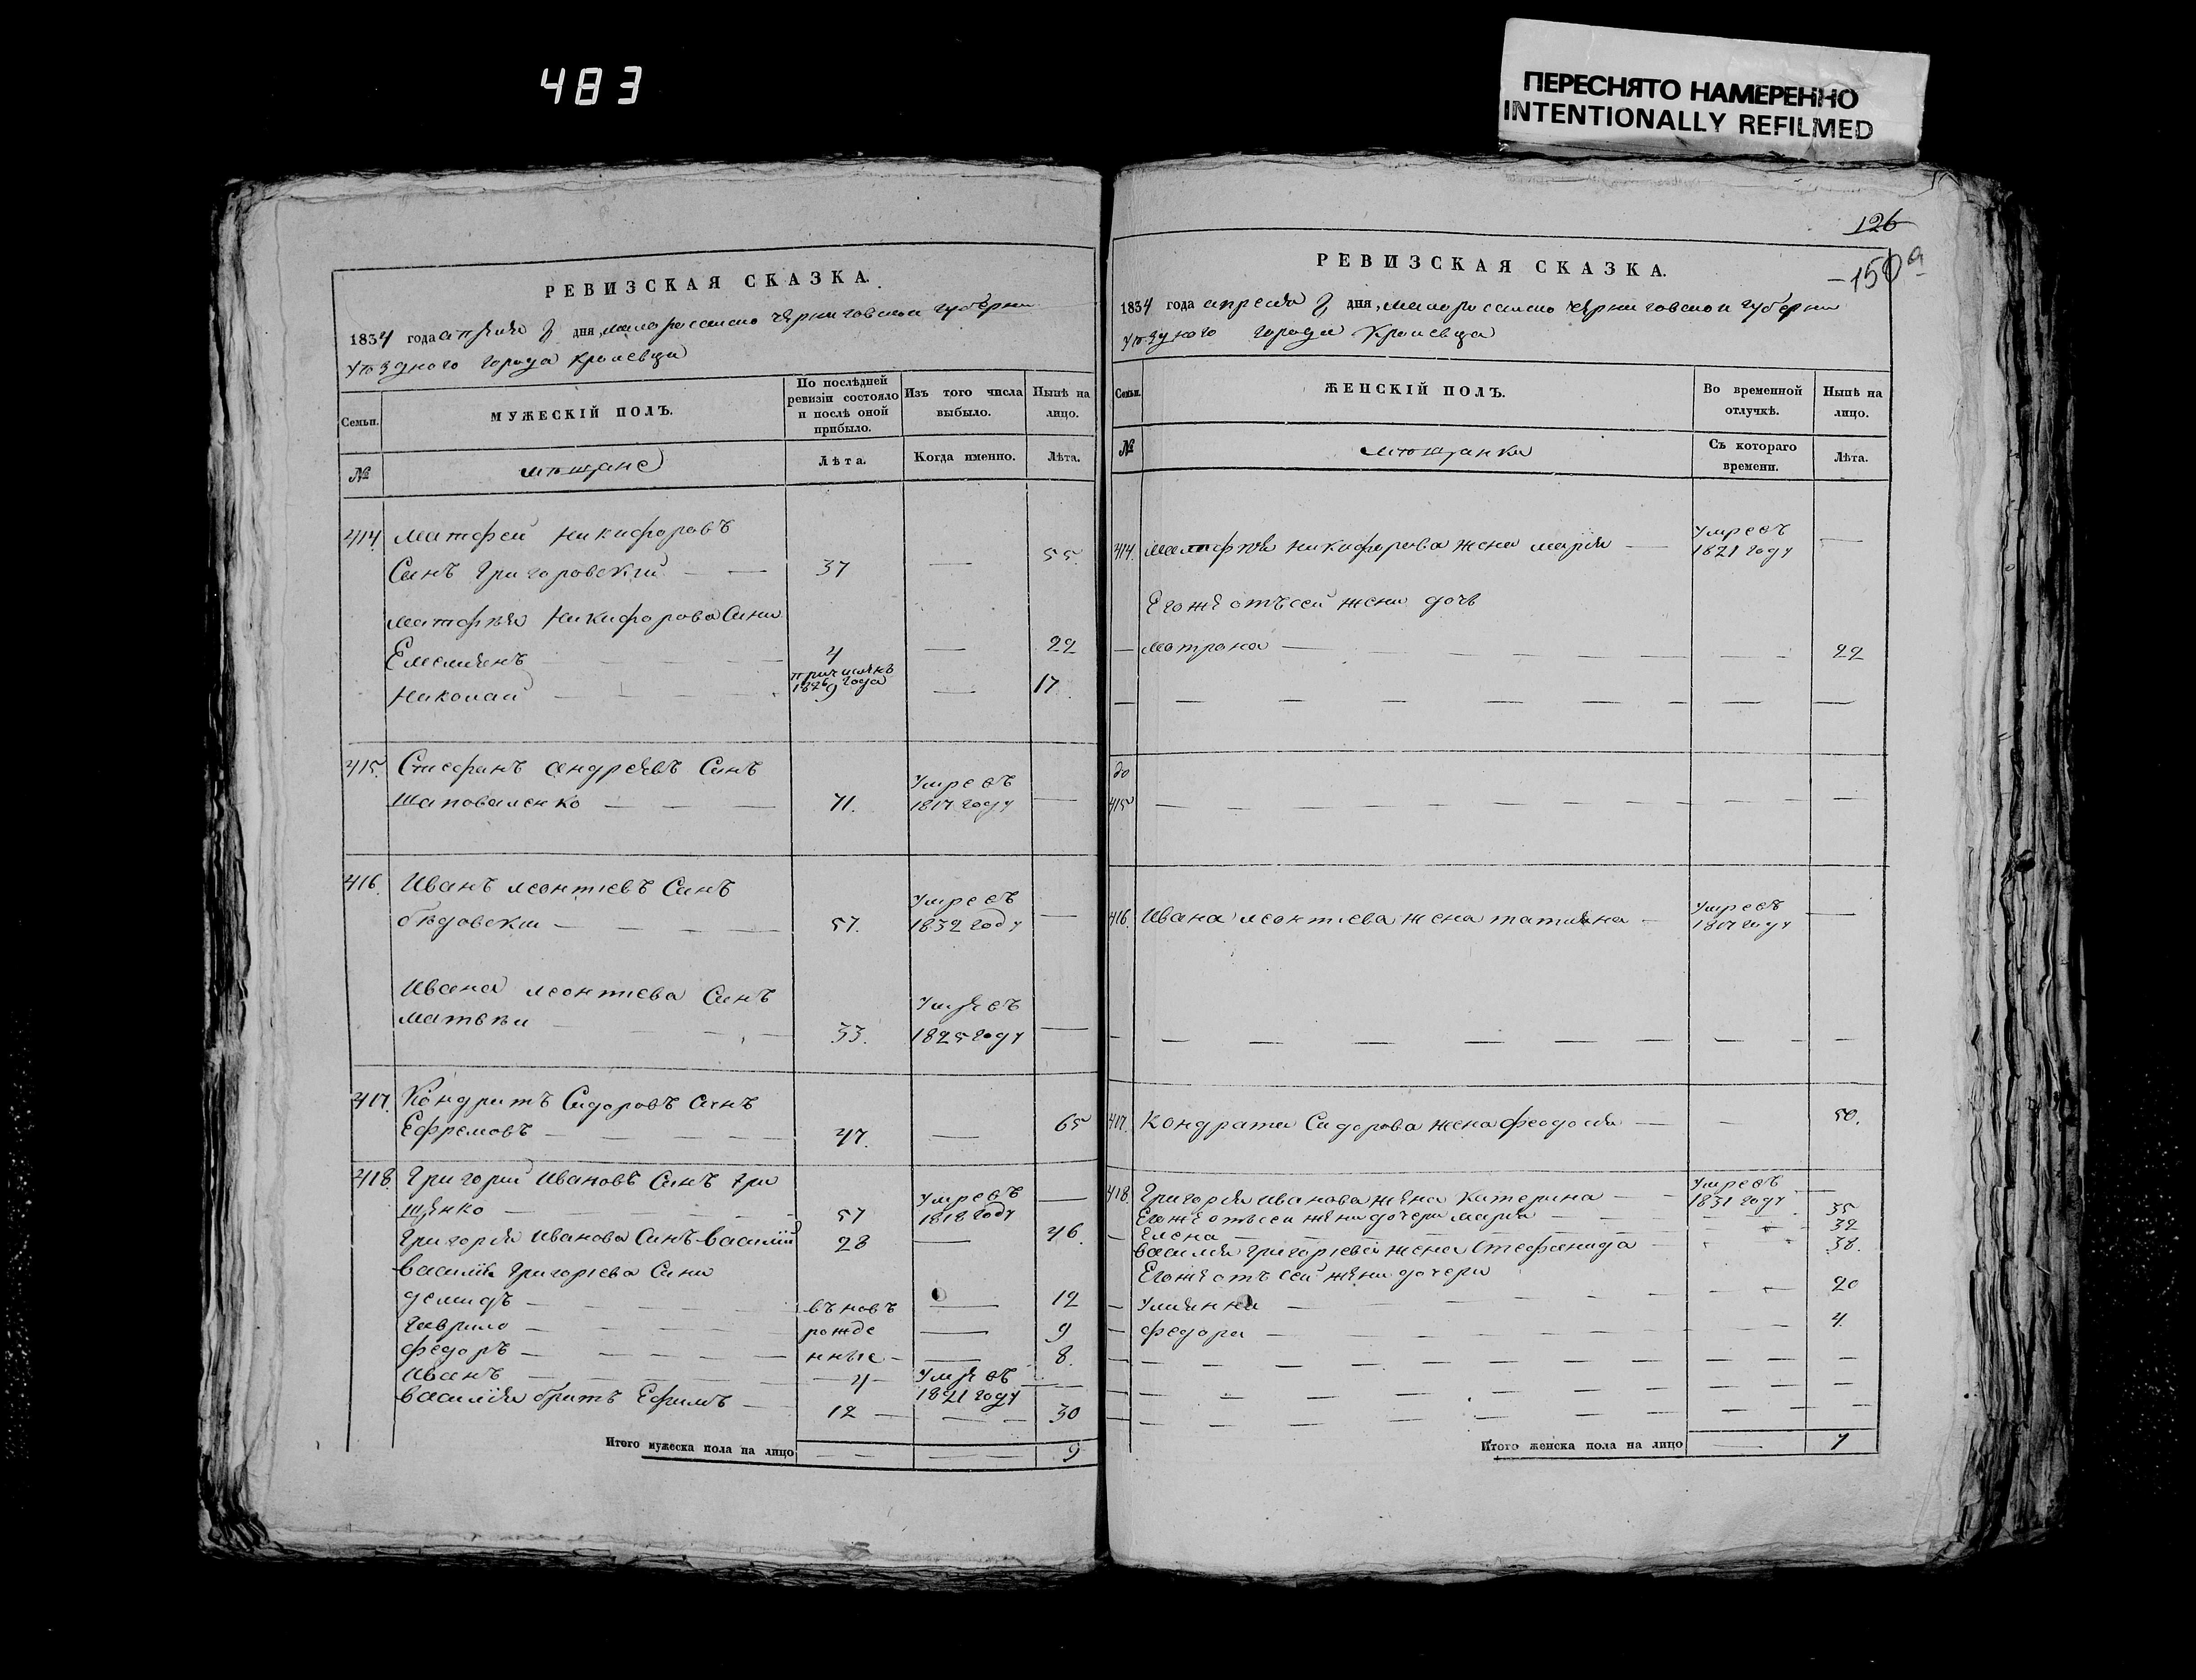 483
ПЕРЕСНЯТО НАМЕРЕННО
INTENTIONALLY REFILMED
РЕВИЗСКАЯ СКАЗКА.
1834 года апреля дня, малоросийско черниговской губерни
уѣздного города кролевца
Семьи.
МУЖЕСКІЙ ПОЛЪ.
По послѣдней ревизіи состояло и послѣ оной прибыло.
Изъ того числа выбыло.
Нынѣ на лицо.
№
мѣщане
Лѣта.
Когда именно.
Лѣта.
414 Матфей Никифоровъ
Синъ Григоровский — — 37 — 55
Матфѣя Никифорова Сини
Емелиянъ — 4 — 22
причислѣнъ
Николай — 1826 года 9 — 17
415. Стефанъ Андреевъ Синъ
Шаповаленко — — — 71. Умревъ 1817 году —
416. Иванъ Леонтіевъ Синъ
бѣдовски — 57. Умревъ 1832 году —
Ивана Леонтіева Синъ
Матвѣи — 33. Умревъ 1825 году —
417. Кондратъ Сидоровъ Синъ
Ефремовъ — 47. — 65
418. Григорий Ивановъ Синъ Гри
щенко — 57 Умревъ 1818 году —
Григорія Иванова Синъ Василій 28 — 46
Василія Григоріева Сини
Демидъ — въновъ — 12
Гаврило — рожде — 9
Федоръ — нные — 8.
Иванъ — 4 Умревъ 1821 году —
Василія братъ Ефимъ — 12 — 30
Итого мужеска пола на лицо — — 9
126
150а
РЕВИЗСКАЯ СКАЗКА.
1834 года апреля дня, малоросийско черниговской губерни
уѣздного города Кролевца
Семьи.
ЖЕНСКІЙ ПОЛЪ.
Во временной отлучкѣ.
Нынѣ на лицо.
№
мѣщанки
Съ котораго времени.
Лѣта.
414. Матфѣя Никифорова жена Марія — Умревъ 1821 году —
Егоже отъсей жени дочь
— Матрона — 22
до
415
416. Ивана Леонтіева жена Татияна — Умревъ 1817 году —
417. Кондрата Сидорова жена Феодосія — — 50.
418. Григорія Иванова жена Катерина — Умревъ 1831 году —
Егоже отъсеи жени дочери Марія — 35
— Елена — 32
Василія Григоріева жена Стефанида — 38.
Егоже отъ сей жени дочери
— Улиянна — 20
— Федора — 4
Итого женска пола на лицо — 7